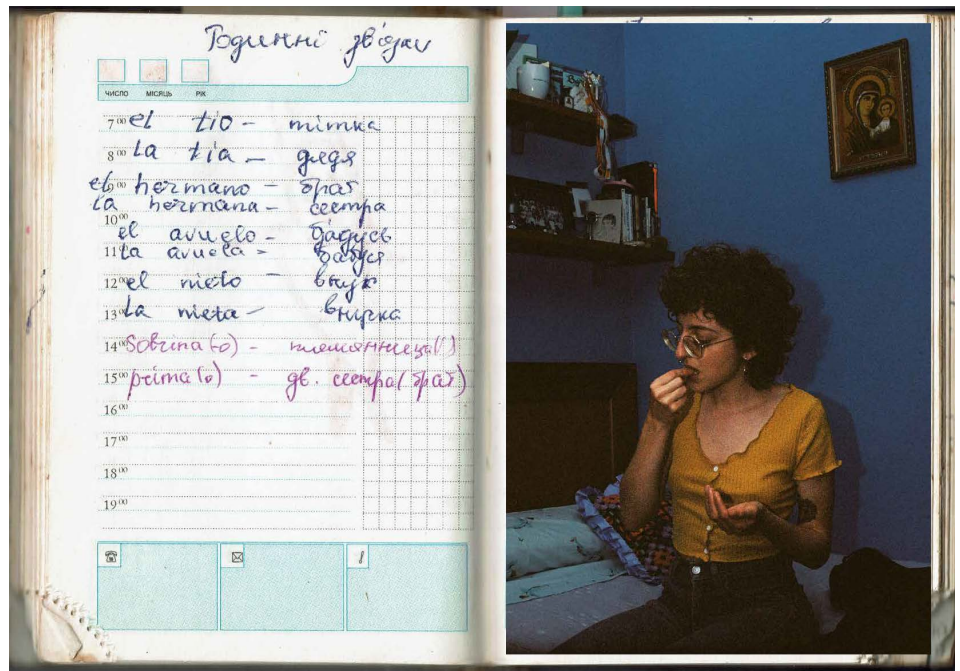 Родинні зв'язки
ЧИСЛО МІСЯЦЬ РІК
7 00 el tio - тітка
8 00 La tía - дядя
9 00 el hermano - брат
La hermana - сестра
10 00
el avuelo - дядусь
11 00 la avuela - бабуся
12 00 el nieto - внук
13 00 La nieta - внучка
14 00 Sobrina (o) - племянница()
15 00 prima (o) - дв. сестра (брат)
16 00
17 00
18 00
19 00